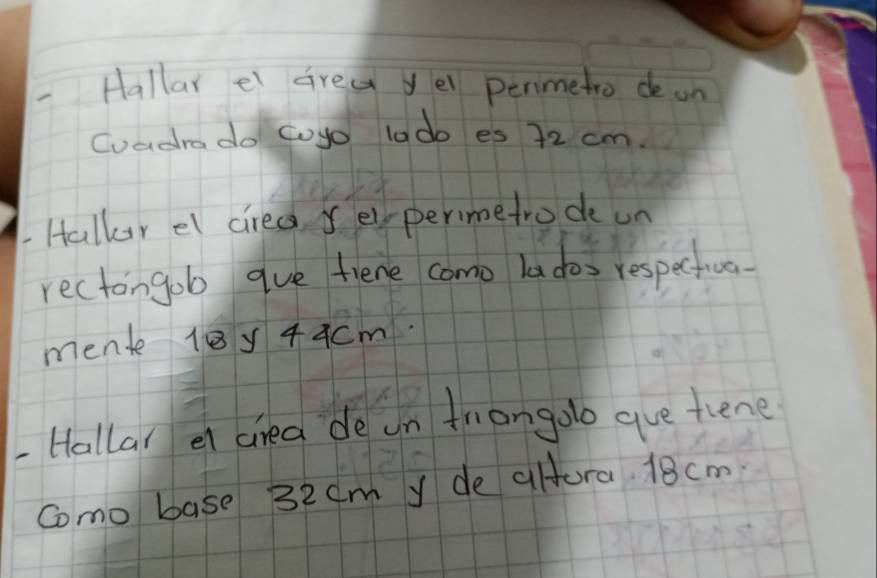 - Hallar el área y el perimetro de un
Cuadrado cuyo lado es 72 cm.
- Hallar el área y el perimetro de un
rectángulo que tiene como lados respectiva-
mente 18 y 44cm.
- Hallar el área de un triangulo que tiene
Como base 32cm y de altura 18cm.